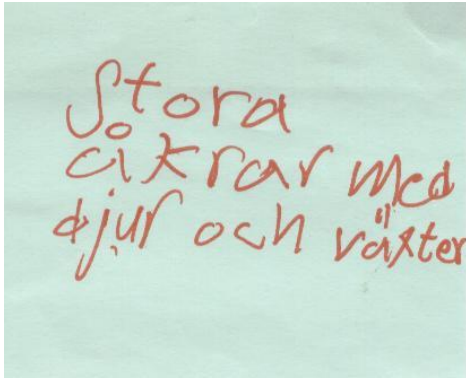 Stora
åkrar med
djur och växter